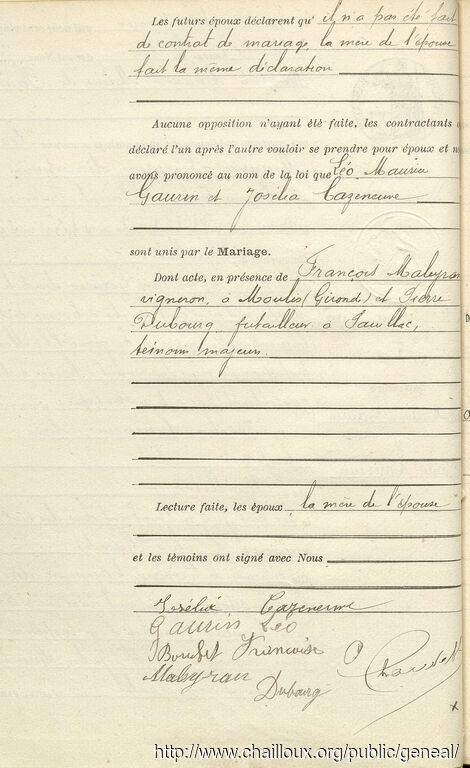 Les futurs époux déclarent qu' il n'a pas été fait
de contrat de mariage, la mère de l'épouse
fait la même déclaration
Aucune opposition n'ayant été faite, les contractants
déclaré l'un après l'autre vouloir se prendre pour époux et
avons prononcé au nom de la loi que Léo Maurice
Gaurin et Josélia Cazeneuve
sont unis par le Mariage.
Dont acte, en présence de François Maleyran
vigneron, à Moulis (Girond) et Pierre
Dubourg, futailleur à Pauillac,
témoins majeurs.
Lecture faite, les époux, la mère de l'épouse
et les témoins ont signé avec Nous
Josélia Cazeneuve
Gaurin Léo
Françoise
Maleyran
Dubourg
http://www.chailloux.org/public/geneal/